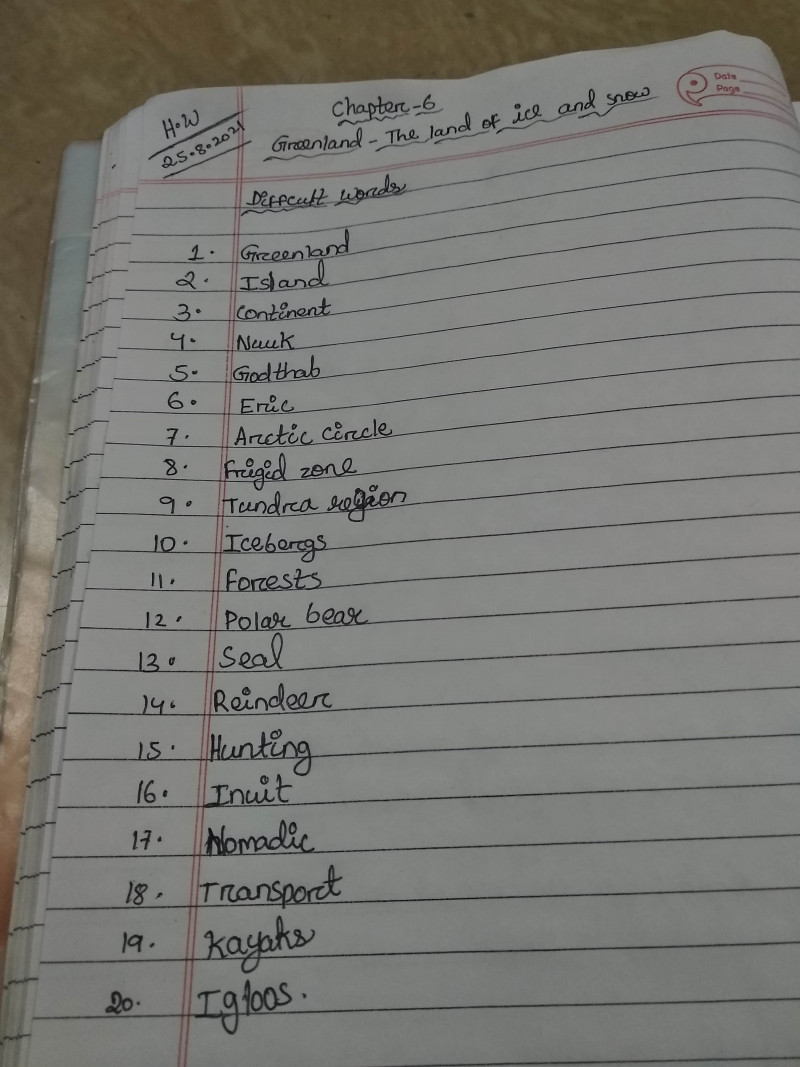 Date
Page
H.W
25.8.2021
Chapter-6
Greenland - The land of ice and snow
Difficult words
1. Greenland
2. Island
3. Continent
4. Nuuk
5. Godthab
6. Eric
7. Arctic circle
8. Frigid zone
9. Tundra region
10. Icebergs
11. Forests
12. Polar bear
13. Seal
14. Reindeer
15. Hunting
16. Inuit
17. Nomadic
18. Transport
19. Kayaks
20. Igloos.